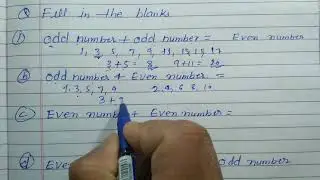 Q Fill in the blanks
(a) odd number + odd number = Even number
1, 3, 5, 7, 9, 11, 13, 15, 17
3+5 = 8 9+11 = 20
(b) odd number + Even number =
1, 3, 5, 7, 9 2, 4, 6, 8, 10
3 + 2
(c) Even number + Even number =
(d) odd number